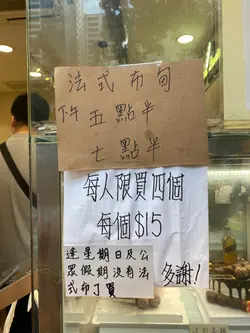 法式布甸
下午 五點半
七點半
每人限買四個
每個$15
逢星期日及公
眾假期沒有法
式布丁買
多謝!